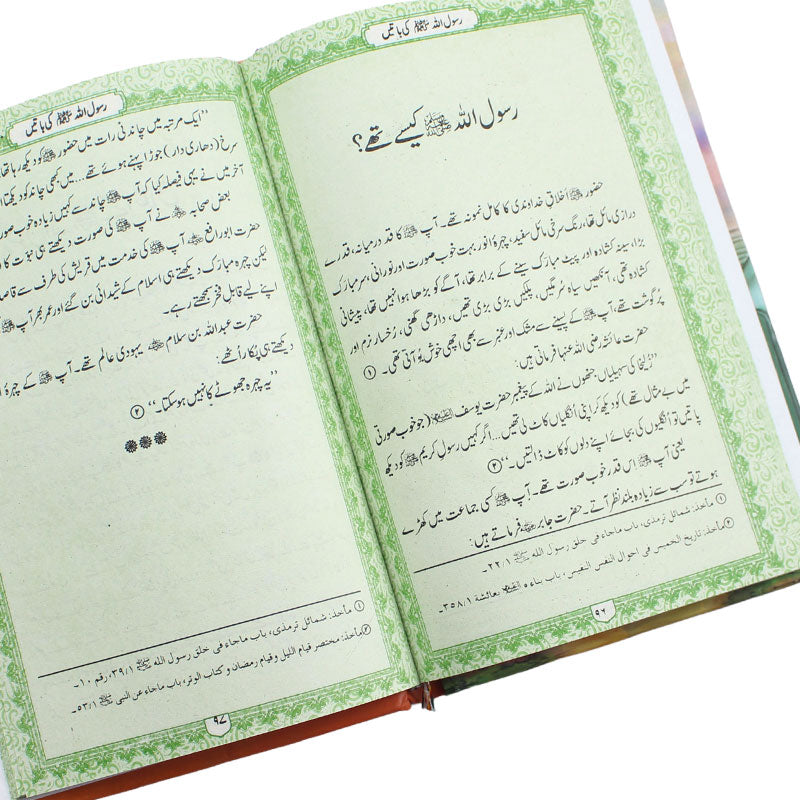 رسول اللہ ﷺ کی باتیں
رسول اللہ ﷺ کیسے تھے؟
حضور ﷺ اخلاق خداوندی کا کامل نمونہ تھے۔ آپ ﷺ کا قد درمیانہ، قدرے
درازی مائل تھا، رنگ سرخی مائل سفید، چہرۂ انور بہت خوب صورت اور نورانی، سر مبارک
بڑا، سینہ کشادہ اور پیٹ مبارک سینے کے برابر تھا، آگے کو بڑھا ہوا نہیں تھا، پیشانی
کشادہ تھی، آنکھیں سیاہ سرمگیں، پلکیں بڑی بڑی تھیں، داڑھی گھنی، رُخسار نرم اور
پُر گوشت تھے، آپ ﷺ کے پسینے سے مشک اور عنبر سے بھی اچھی خوش بُو آتی تھی۔ ①
حضرت عائشہ رضی اللہ عنہا فرماتی ہیں:
’’زُلیخا کی سہیلیاں، جنھوں نے اللہ کے پیغمبر حضرت یوسف علیہ السلام (جو خوب صورتی
میں بے مثال تھے) کو دیکھ کر اپنی اُنگلیاں کاٹ لی تھیں... اگر کہیں رسولِ کریم ﷺ کو دیکھ
پاتیں تو اُنگلیوں کی بجائے اپنے دلوں کو کاٹ ڈالتیں۔‘‘ ②
یعنی آپ ﷺ اس قدر خوب صورت تھے۔ آپ ﷺ کسی جماعت میں کھڑے
ہوتے تو سب سے زیادہ بلند نظر آتے۔ حضرت جابر ؓ فرماتے ہیں:
① مأخذ: شمائل ترمذی، باب ماجاء فی خلق رسول اللہ ﷺ ۲۲/۱۔
② مأخذ: تاریخ الخمیس فی احوال النفس النفیس، باب بناءہ ﷺ بعائشة ۳۵۸/۱۔
۹۶
رسول اللہ ﷺ کی باتیں
’’ایک مرتبہ میں چاندنی رات میں حضور ﷺ کو دیکھ رہا تھا
سرخ (دھاری دار) جوڑا پہنے ہوئے تھے... میں کبھی چاند کو دیکھتا
آخر میں نے یہی فیصلہ کیا کہ آپ ﷺ چاند سے کہیں زیادہ خوب صور
بعض صحابہ ؓ نے آپ ﷺ کی صورت دیکھتے ہی نبوّت کا
حضرت ابورافع ؓ آپ ﷺ کی خدمت میں قریش کی طرف سے قاصد
لیکن چہرہ مبارک دیکھتے ہی اسلام کے شیدائی بن گئے اور عمر بھر آپ ﷺ
اپنے لیے قابلِ فخر سمجھتے رہے۔
حضرت عبداللہ بن سلام ؓ یہودی عالم تھے۔ آپ ﷺ کے چہرۂ
دیکھتے ہی پُکار اُٹھے:
’’یہ چہرہ جھوٹے کا نہیں ہو سکتا۔‘‘ ②
① مأخذ: شمائل ترمذی، باب ماجاء فی خلق رسول اللہ ﷺ ۳۹/۱، رقم ۱۰۔
② مأخذ: مختصر قیام اللیل وقیام رمضان و کتاب الوتر، باب ماجاء عن النبی ﷺ ۵۳/۱۔
۹۷